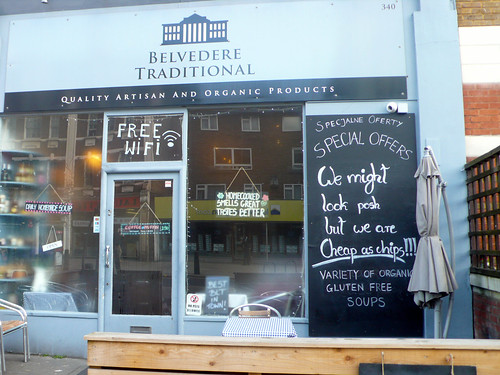 340
BELVEDERE
TRADITIONAL
QUALITY ARTISAN AND ORGANIC PRODUCTS
FREE
WiFi
SPECJALNE OFERTY
SPECIAL OFFERS
We might
look posh
but we are
Cheap as chips!!!
VARIETY OF ORGANIC
GLUTEN FREE
SOUPS
HOMECOOKED
SMELLS GREAT
TASTES BETTER
BEST
BET IN
TOWN!